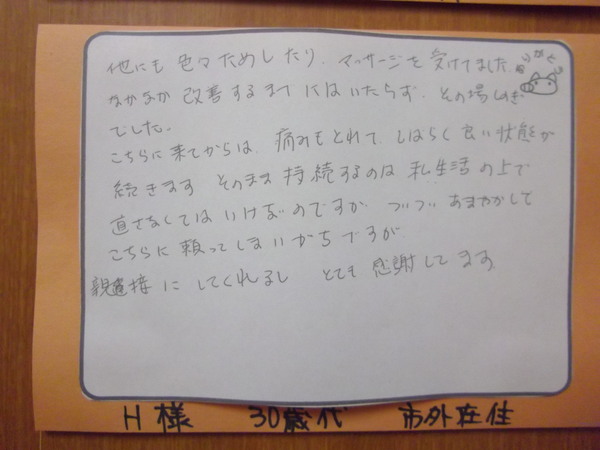 他にも 色々ためしたり、マッサージを 受けてました
ありがとう
なかなか 改善するまでにはいたらず、その場しのぎ
でした。
こちらに来てからは、痛みもとれて、しばらく良い状態が
続きます そのまま持続するのは 私生活の上で
直さなくてはいけないのですが ついつい あまやかして
こちらに 頼ってしまいがちですが
親接 に してくれるし とても 感謝してます
H様 30歳代 市外在住